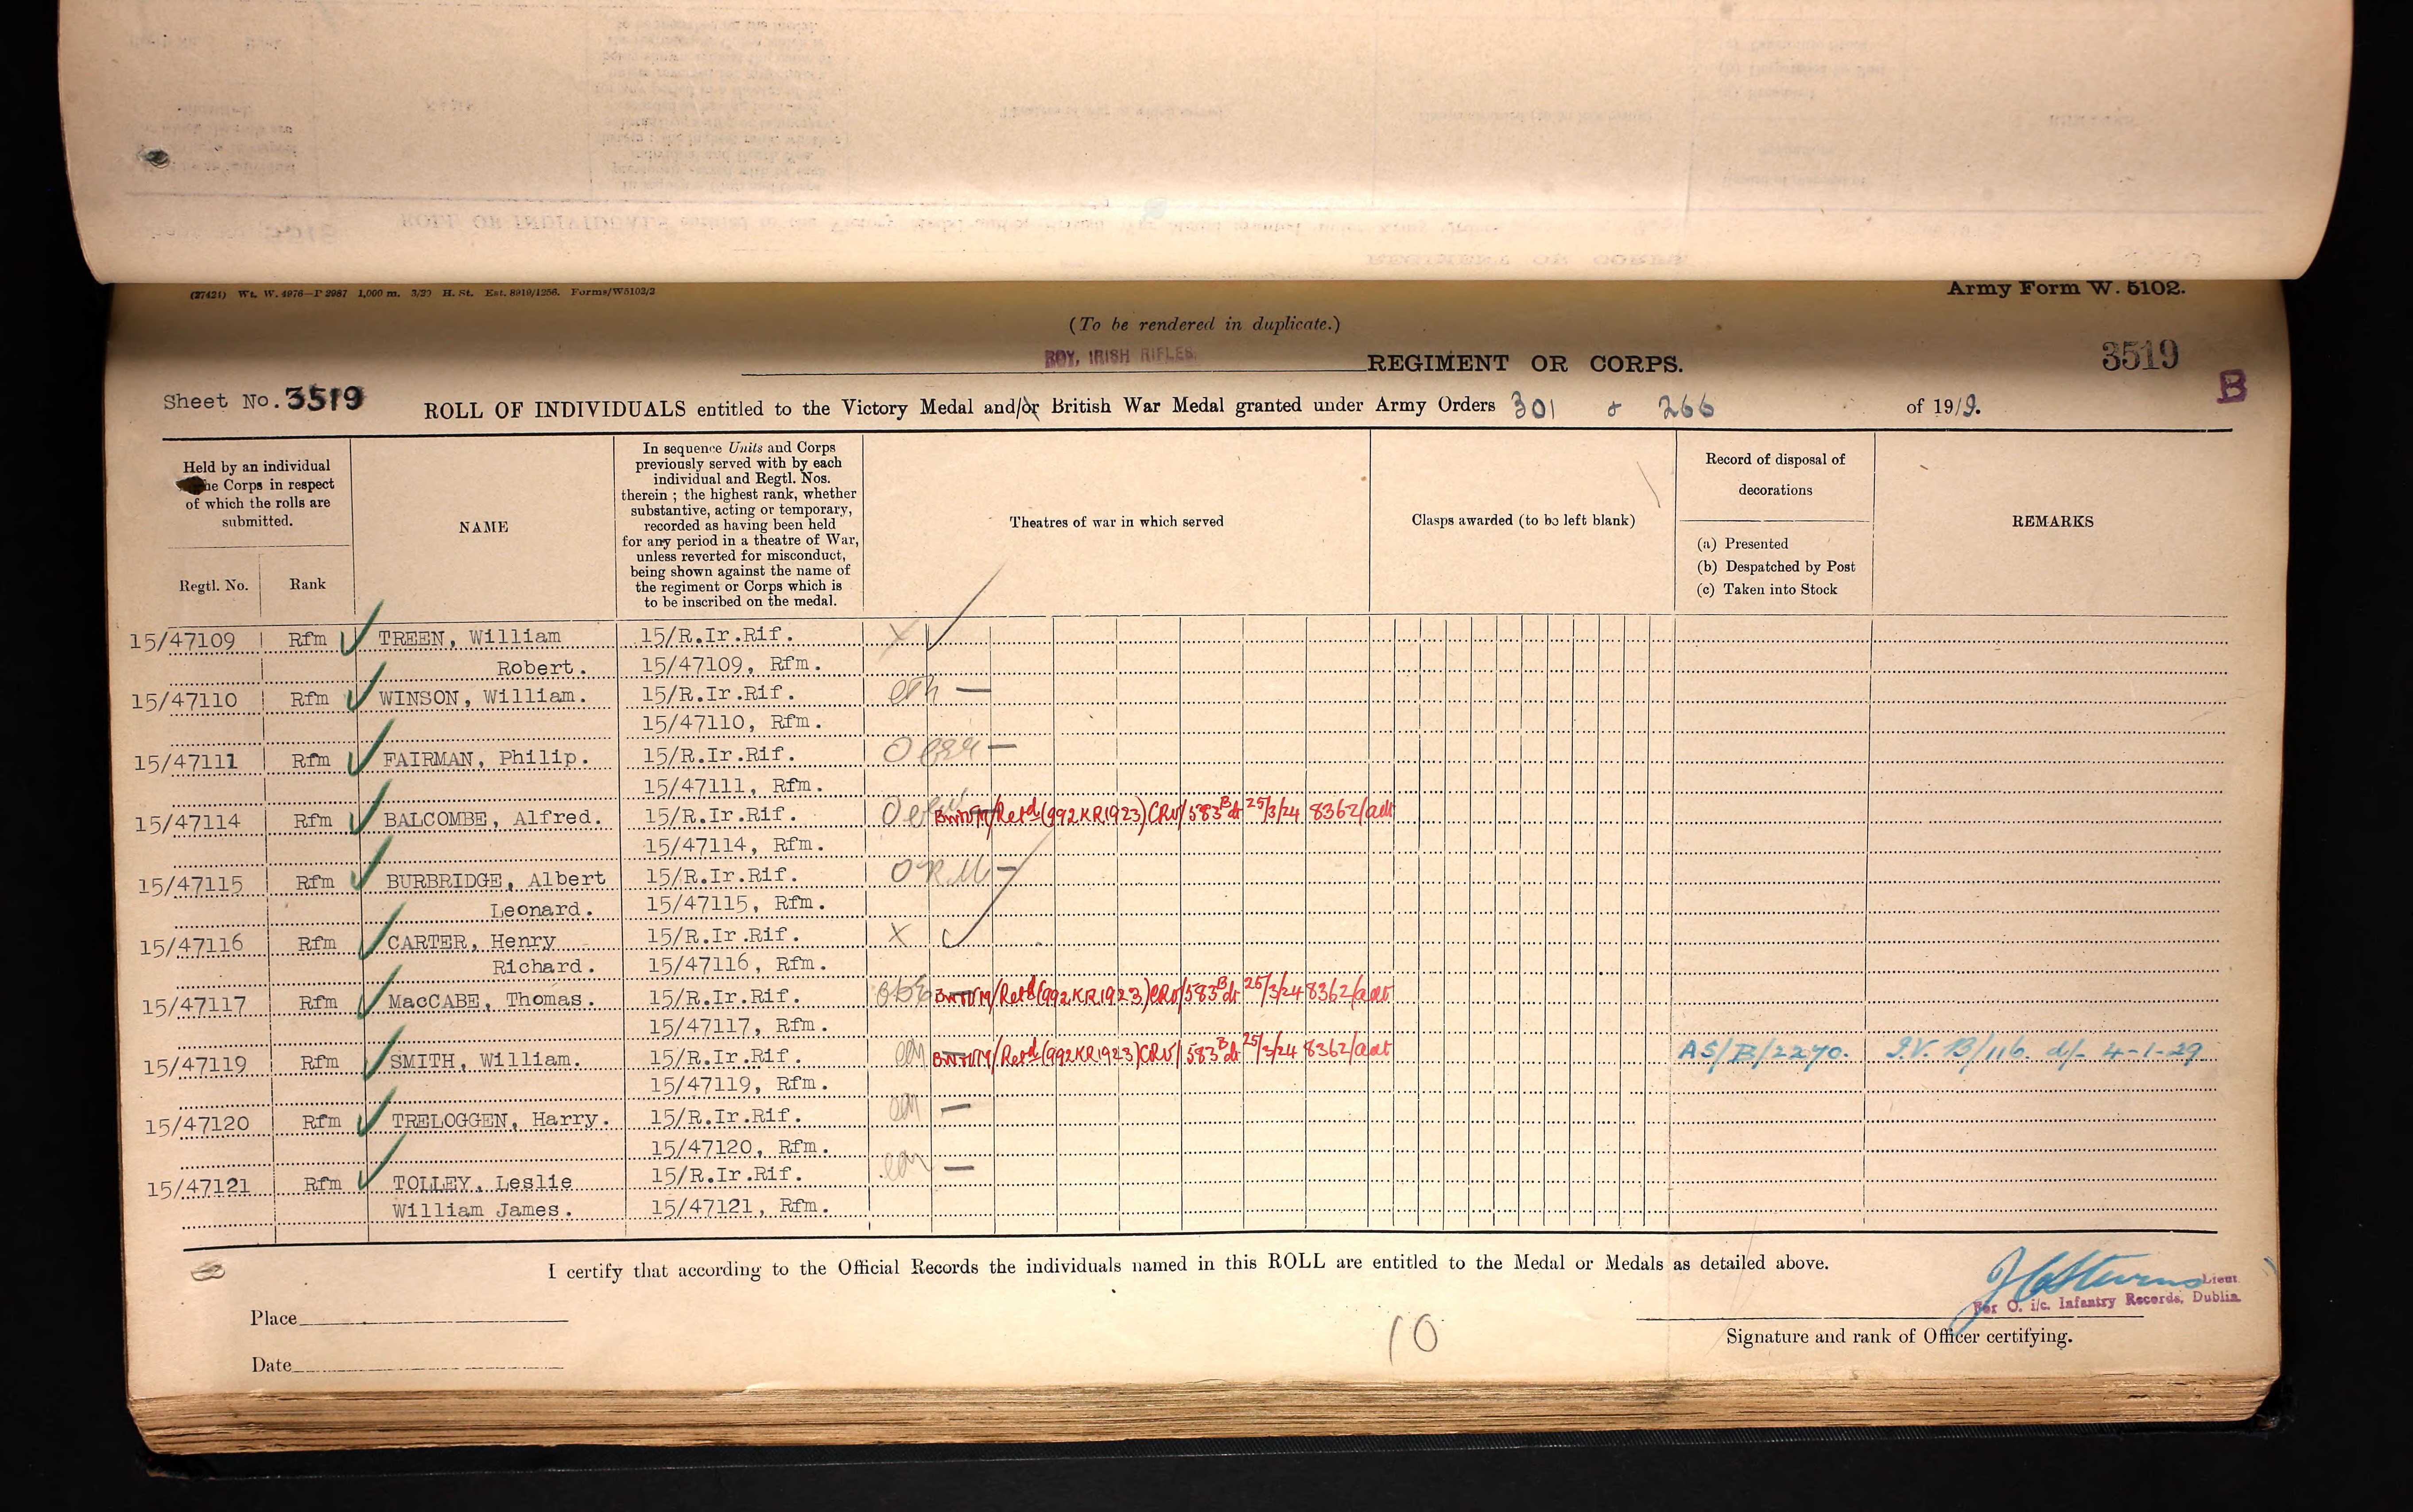 (27424) Wt. W. 4976—P 2987 1,000 m. 3/20 H. St. Est. 8919/1256. Forms/W5102/2
Army Form W. 5102.
(To be rendered in duplicate.)
ROY. IRISH RIFLES. REGIMENT OR CORPS.
3519
Sheet No. 3519
B
ROLL OF INDIVIDUALS entitled to the Victory Medal and/or British War Medal granted under Army Orders 301 & 266 of 1919.
Held by an individual
the Corps in respect
of which the rolls are
submitted.
Regtl. No. Rank
NAME
In sequence Units and Corps
previously served with by each
individual and Regtl. Nos.
therein ; the highest rank, whether
substantive, acting or temporary,
recorded as having been held
for any period in a theatre of War,
unless reverted for misconduct,
being shown against the name of
the regiment or Corps which is
to be inscribed on the medal.
Theatres of war in which served
Clasps awarded (to be left blank)
Record of disposal of
decorations
(a) Presented
(b) Despatched by Post
(c) Taken into Stock
REMARKS
15/47109 Rfm TREEN, William 15/R.Ir.Rif. X
Robert. 15/47109, Rfm.
15/47110 Rfm WINSON, William. 15/R.Ir.Rif.
15/47110, Rfm.
15/47111 Rfm FAIRMAN, Philip. 15/R.Ir.Rif.
15/47111, Rfm.
15/47114 Rfm BALCOMBE, Alfred. 15/R.Ir.Rif. BW&VM/Retd (992KR1923) CRV/583B dt 25/3/24 8362/adt
15/47114, Rfm.
15/47115 Rfm BURBRIDGE, Albert 15/R.Ir.Rif.
Leonard. 15/47115, Rfm.
15/47116 Rfm CARTER, Henry 15/R.Ir.Rif. X
Richard. 15/47116, Rfm.
15/47117 Rfm MacCABE, Thomas. 15/R.Ir.Rif. BW&VM/Retd (992KR1923) CRV/583B dt 25/3/24 8362/adt
15/47117, Rfm.
15/47119 Rfm SMITH, William. 15/R.Ir.Rif. BW&VM/Retd (992KR1923) CRV/583B dt 25/3/24 8362/adt AS/B/2270. I.V. B/116 d/- 4-1-29
15/47119, Rfm.
15/47120 Rfm TRELOGGEN, Harry. 15/R.Ir.Rif.
15/47120, Rfm.
15/47121 Rfm TOLLEY, Leslie 15/R.Ir.Rif.
William James. 15/47121, Rfm.
I certify that according to the Official Records the individuals named in this ROLL are entitled to the Medal or Medals as detailed above.
Lieut
For O. i/c. Infantry Records, Dublin
Place
10
Signature and rank of Officer certifying.
Date